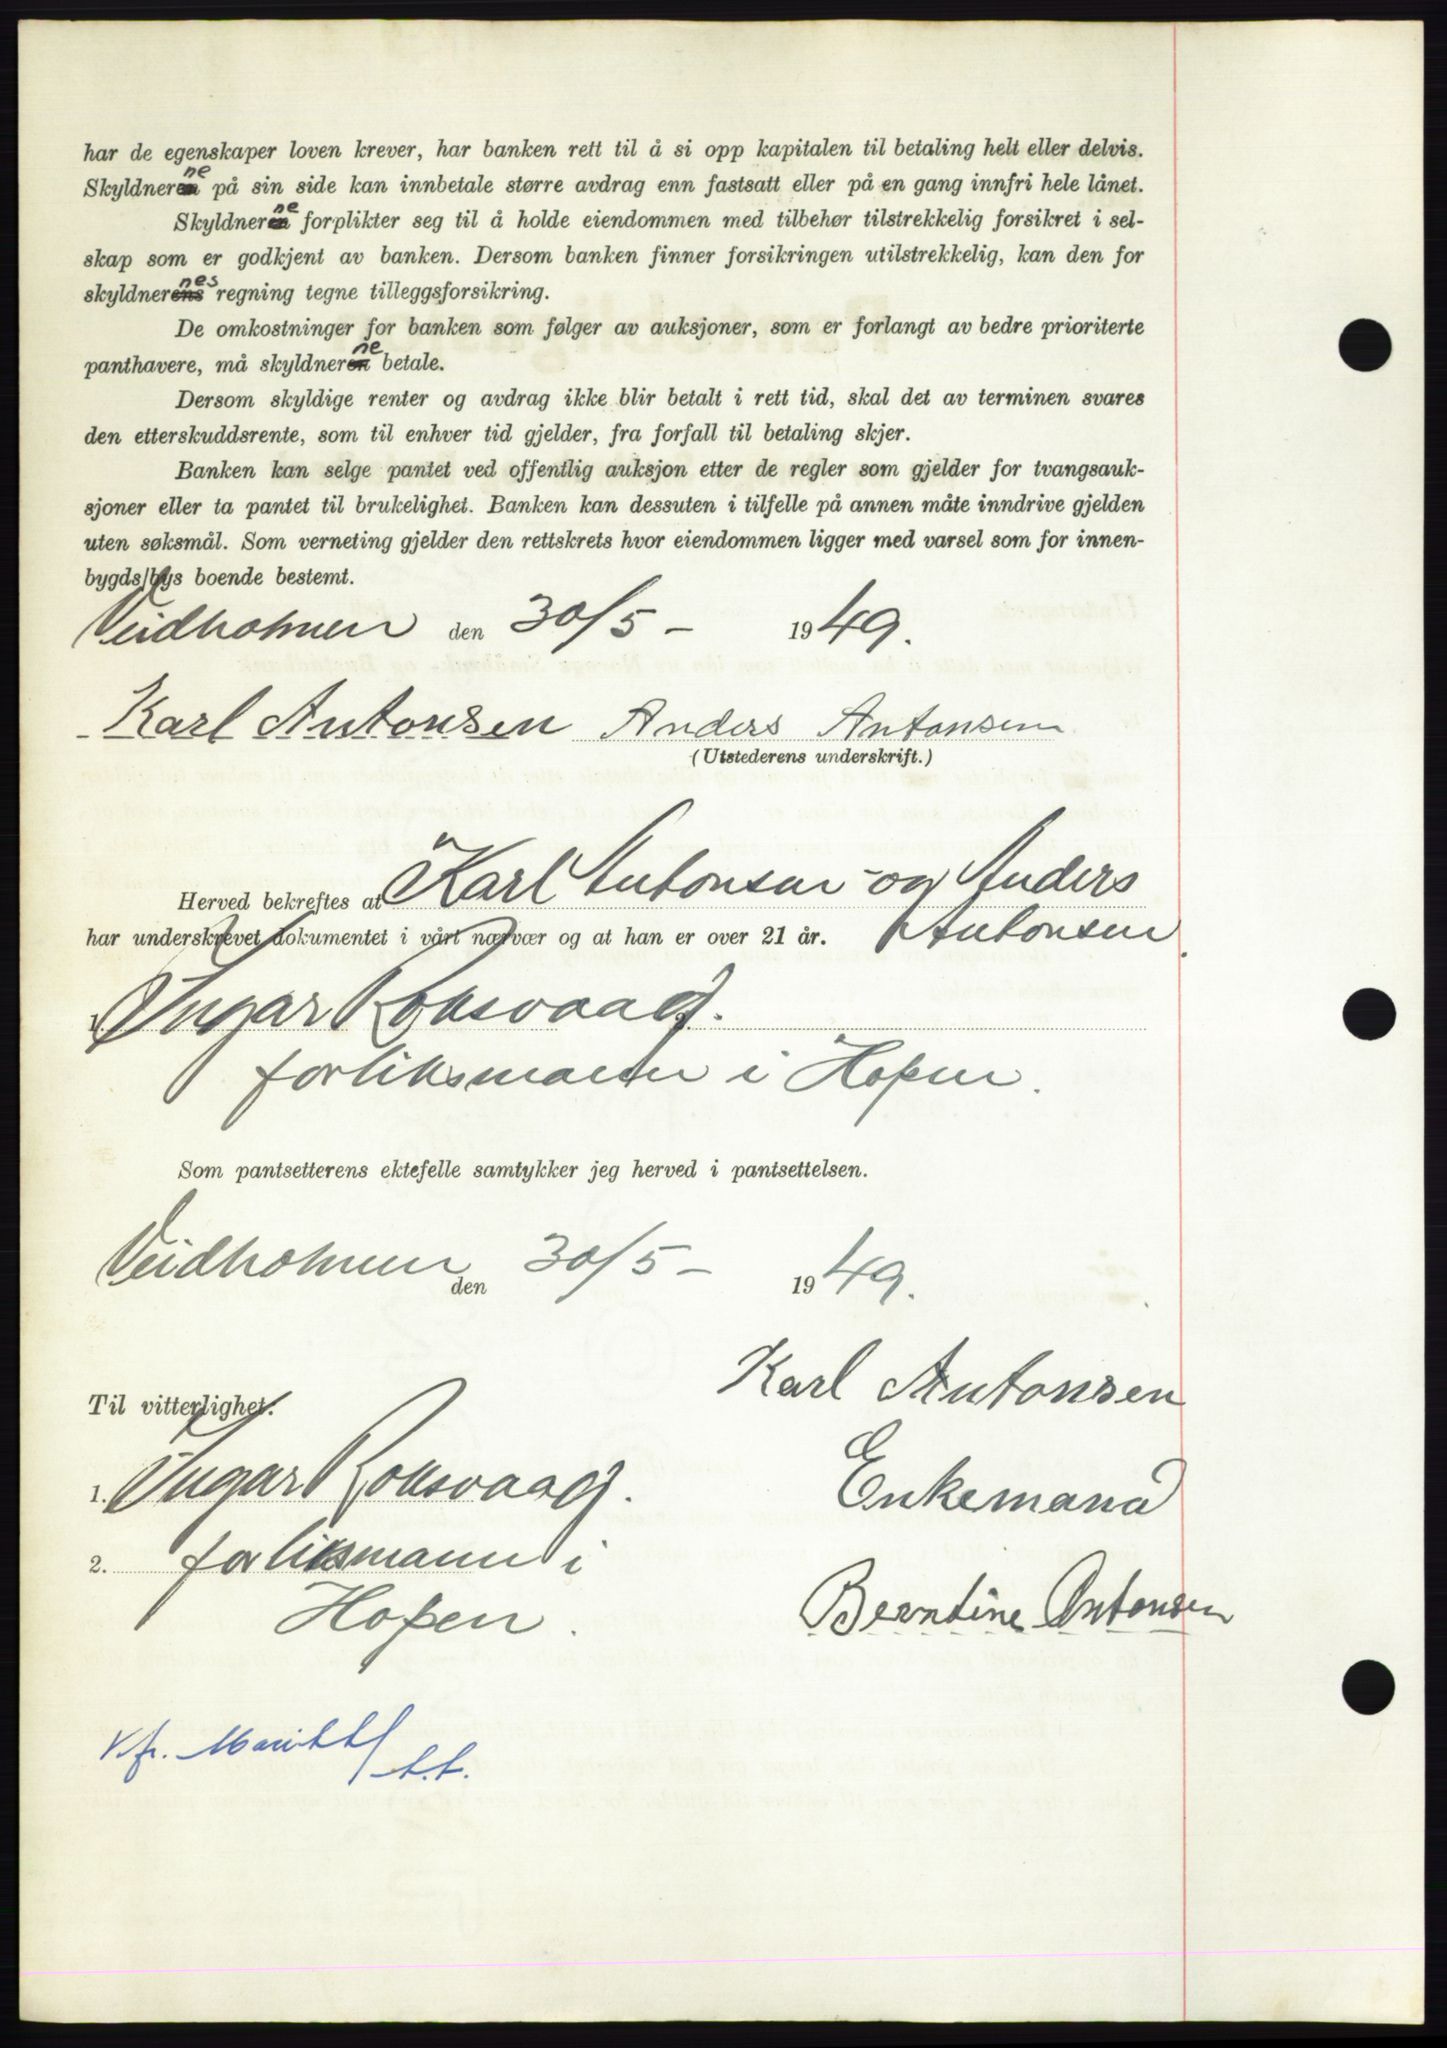 har de egenskaper loven krever, har banken rett til å si opp kapitalen til betaling helt eller delvis.
Skyldnerne på sin side kan innbetale større avdrag enn fastsatt eller på en gang innfri hele lånet.
Skyldnerne forplikter seg til å holde eiendommen med tilbehør tilstrekkelig forsikret i sel-
skap som er godkjent av banken. Dersom banken finner forsikringen utilstrekkelig, kan den for
skyldnernes regning tegne tilleggsforsikring.
De omkostninger for banken som følger av auksjoner, som er forlangt av bedre prioriterte
panthavere, må skyldnerne betale.
Dersom skyldige renter og avdrag ikke blir betalt i rett tid, skal det av terminen svares
den etterskuddsrente, som til enhver tid gjelder, fra forfall til betaling skjer.
Banken kan selge pantet ved offentlig auksjon etter de regler som gjelder for tvangsauk-
sjoner eller ta pantet til brukelighet. Banken kan dessuten i tilfelle på annen måte inndrive gjelden
uten søksmål. Som verneting gjelder den rettskrets hvor eiendommen ligger med varsel som for innen-
bygds/bys boende bestemt.
Veidholmen den 30/5 - 1949.
Karl Antonsen Anders Antonsen
(Utstederens underskrift.)
Herved bekreftes at Karl Antonsen og Anders
har underskrevet dokumentet i vårt nærvær og at han er over 21 år. Antonsen.
1. Ingar Roksvaag.
forliksmann i Hopen.
Som pantsetterens ektefelle samtykker jeg herved i pantsettelsen.
Veidholmen den 30/5 - 1949.
Karl Antonsen
Til vitterlighet:
Enkemand
1. Ingar Roksvaag.
2. forliksmann i
Hopen.
Berntine Antonsen